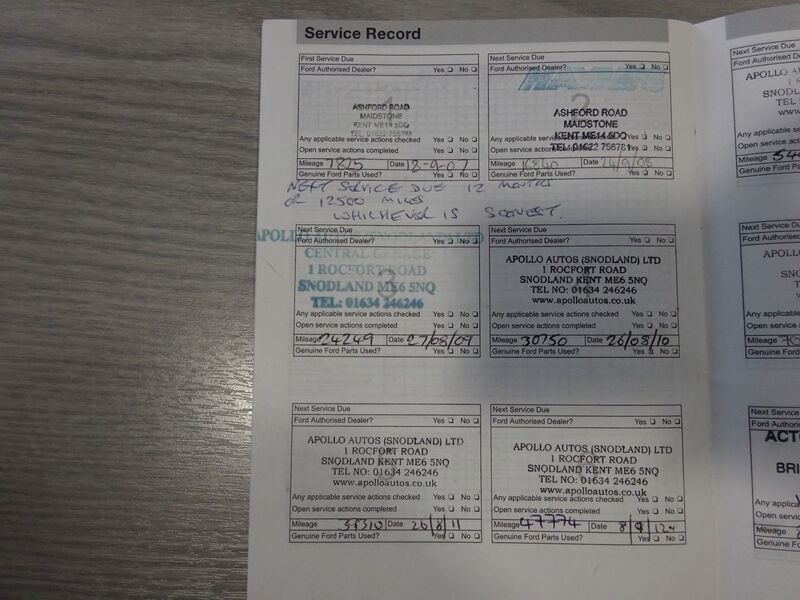 Service Record
First Service Due
Ford Authorised Dealer? Yes No
ASHFORD ROAD
MAIDSTONE
KENT ME14 5DQ
TEL. 01622 756781
Any applicable service actions checked Yes No
Open service actions completed Yes No
Mileage 7825 Date 18-9-07
Genuine Ford Parts Used? Yes No
NEXT SERVICE DUE 12 MONTHS
OR 12500 MILES
WHICHEVER IS SOONEST.
Next Service Due
Ford Authorised Dealer? Yes No
2
ASHFORD ROAD
MAIDSTONE
KENT ME14 5DQ
TEL: 01622 756781
Any applicable service actions checked Yes No
Open service actions completed Yes No
Mileage 16840 Date 24/9/08
Genuine Ford Parts Used? Yes No
Next Service Due
Ford Authorised Dealer? Yes No
APOLLO AUTOS (SNODLAND) LTD
CENTRAL GARAGE
1 ROCFORT ROAD
3
SNODLAND ME6 5NQ
TEL: 01634 246246
Any applicable service actions checked Yes No
Open service actions completed Yes No
Mileage 24249 Date 27/08/09
Genuine Ford Parts Used? Yes No
Next Service Due
Ford Authorised Dealer? Yes No
APOLLO AUTOS (SNODLAND) LTD
1 ROCFORT ROAD
SNODLAND KENT ME6 5NQ
TEL NO: 01634 246246
www.apolloautos.co.uk
Any applicable service actions checked Yes No
Open service actions completed Yes No
Mileage 30750 Date 26/08/10
Genuine Ford Parts Used? Yes No
Next Service Due
Ford Authorised Dealer? Yes No
APOLLO AUTOS (SNODLAND) LTD
1 ROCFORT ROAD
SNODLAND KENT ME6 5NQ
TEL NO: 01634 246246
www.apolloautos.co.uk
Any applicable service actions checked Yes No
Open service actions completed Yes No
Mileage Date 26/8/11
Genuine Ford Parts Used? Yes No
Next Service Due
Ford Authorised Dealer? Yes No
APOLLO AUTOS (SNODLAND) LTD
1 ROCFORT ROAD
SNODLAND KENT ME6 5NQ
TEL NO: 01634 246246
www.apolloautos.co.uk
Any applicable service actions checked Yes No
Open service actions completed Yes No
Mileage 47774 Date 8/9/12
Genuine Ford Parts Used? Yes No
Next Service Due
Ford Authorised
APOLLO AU
1
SNODL
TEL
ww
Any applicable
Open service a
Mileage 54
Genuine Ford
Next Service Du
Ford Authorised
APOLLO A
SNOD
TEL
Any applicable
Open service
Mileage 70
Genuine Ford
Next Service
Ford Authoris
ACTO
BRI
Any applica
Open servi
Mileage
Genuine F